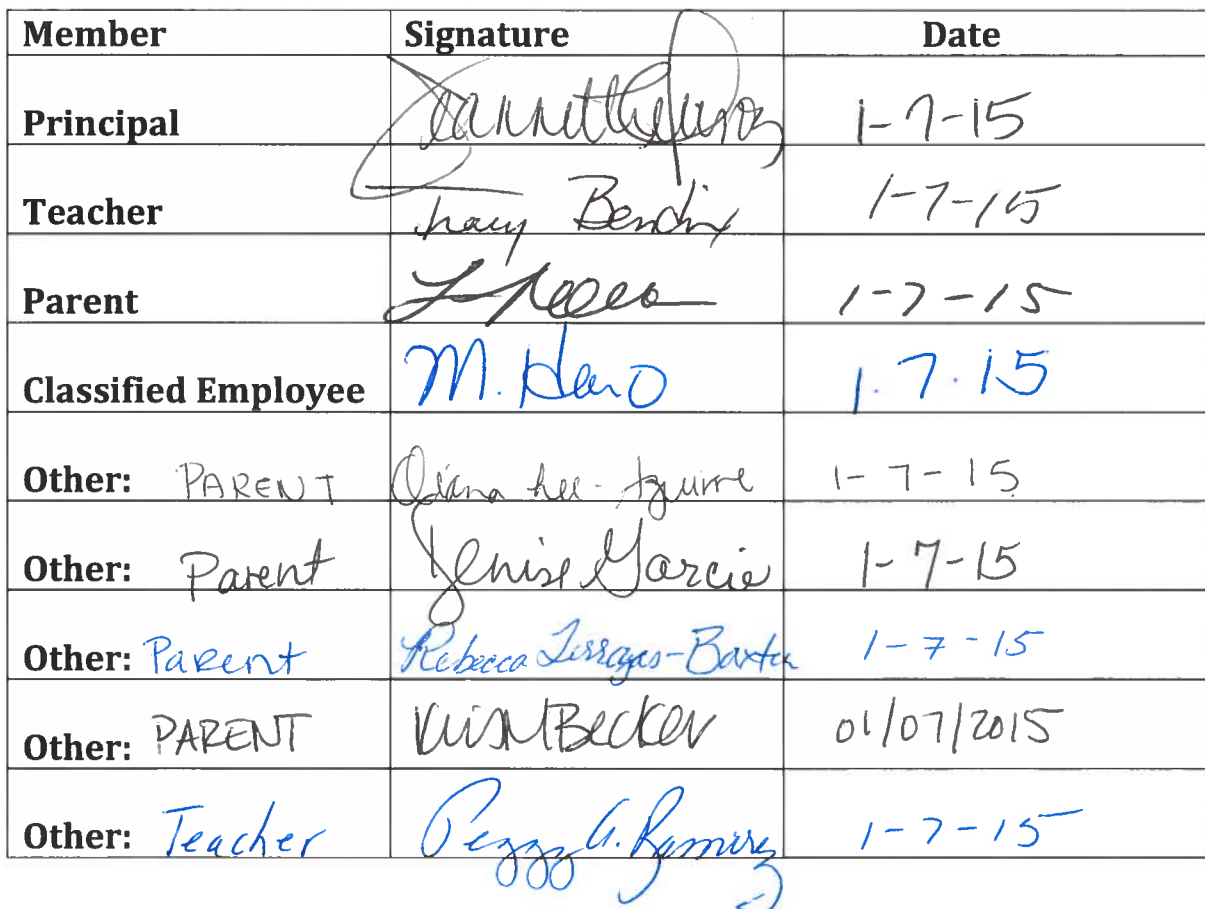 Member Signature Date
Principal 1-7-15
Teacher Tracy Bendix 1-7-15
Parent 1-7-15
Classified Employee M. Haro 1.7.15
Other: PARENT Diana Lee-Aguirre 1-7-15
Other: Parent Denise Garcia 1-7-15
Other: Parent Rebecca Terrazas-Baxter 1-7-15
Other: PARENT Kris M Becker 01/07/2015
Other: Teacher Peggy A. Ramirez 1-7-15